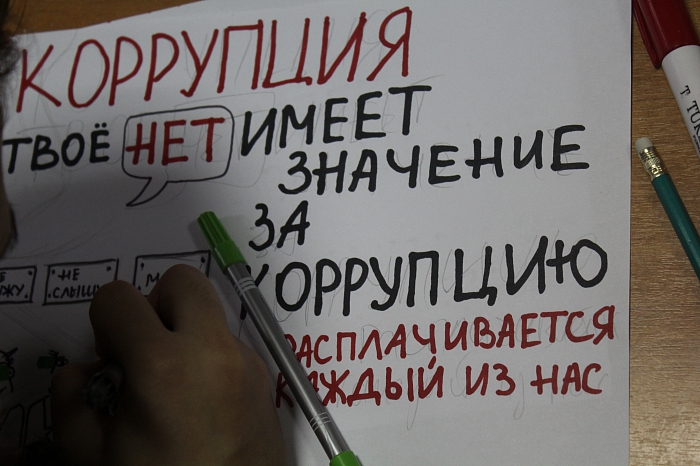 КОРРУПЦИЯ
ТВОЁ НЕТ ИМЕЕТ
ЗНАЧЕНИЕ
ЗА
КОРРУПЦИЮ
РАСПЛАЧИВАЕТСЯ
КАЖДЫЙ ИЗ НАС
НЕ
СЛЫШУ